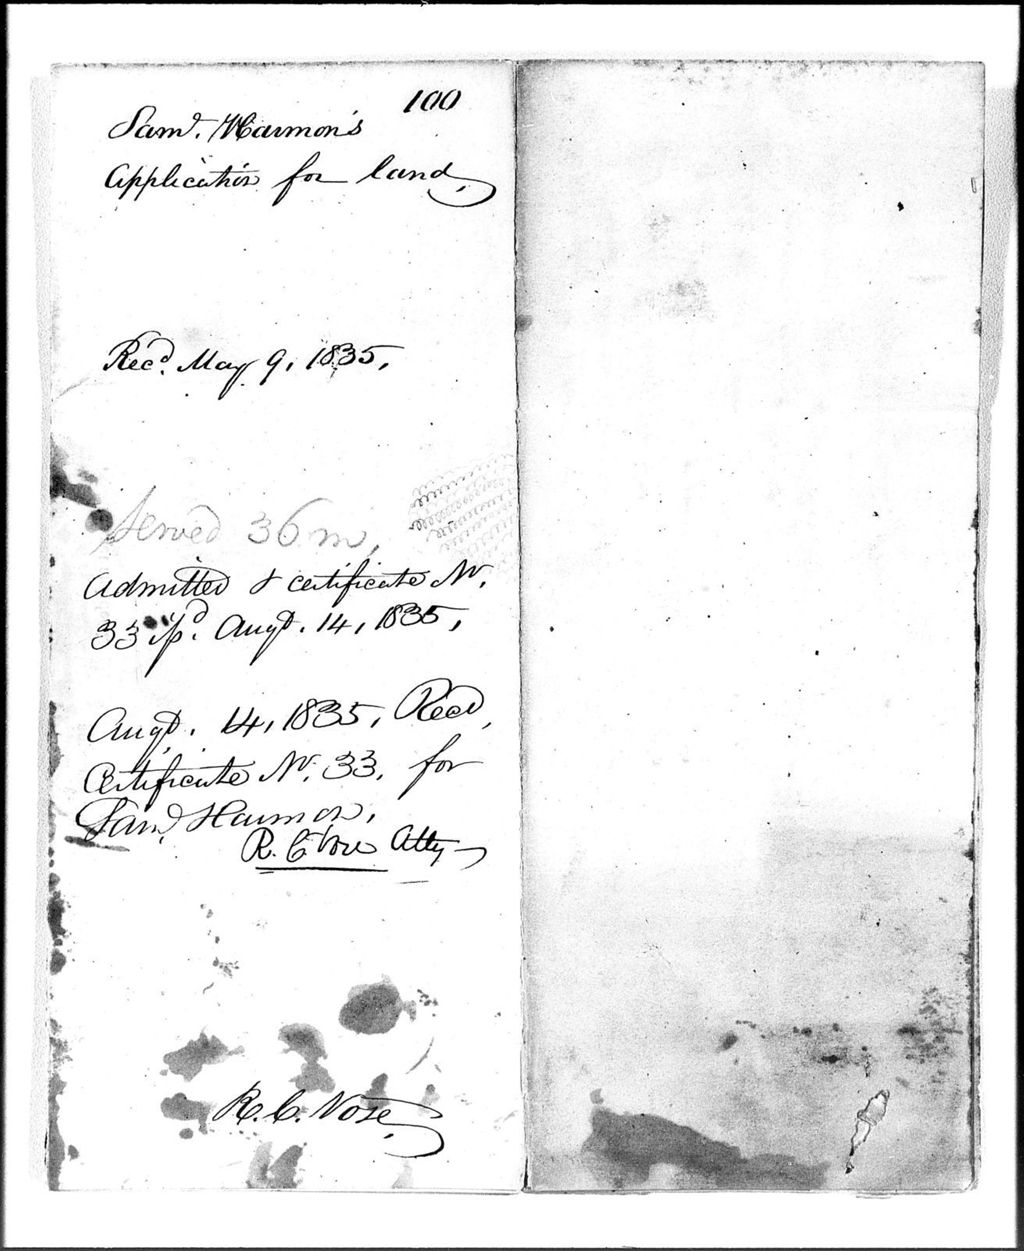 100
Saml. Harmon's
Application for land,
Recd. May 9, 1835,
Served 36 m,
Admitted & certificate No.
33 pd. Augt. 14, 1835,
Augt. 14, 1835, Recd,
Certificate No. 33, for
Saml. Harmon,
R. C. Vose Atty
R. C. Vose,